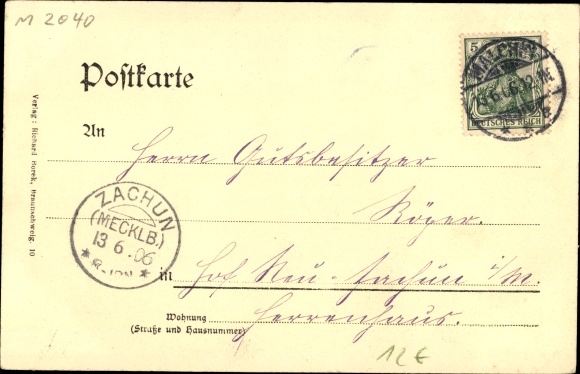 M 2040
Postkarte
5
MALCHIN
DEUTSCHES REICH
An
Herrn Gutsbesitzer
Röper.
ZACHUN
(MECKLB.)
13 6 .06
in Hof Neu-Zachun i/M.
Wohnung
(Straße und Hausnummer)
Herrenhaus.
12€
Verlag: Richard Borek, Braunschweig. 10